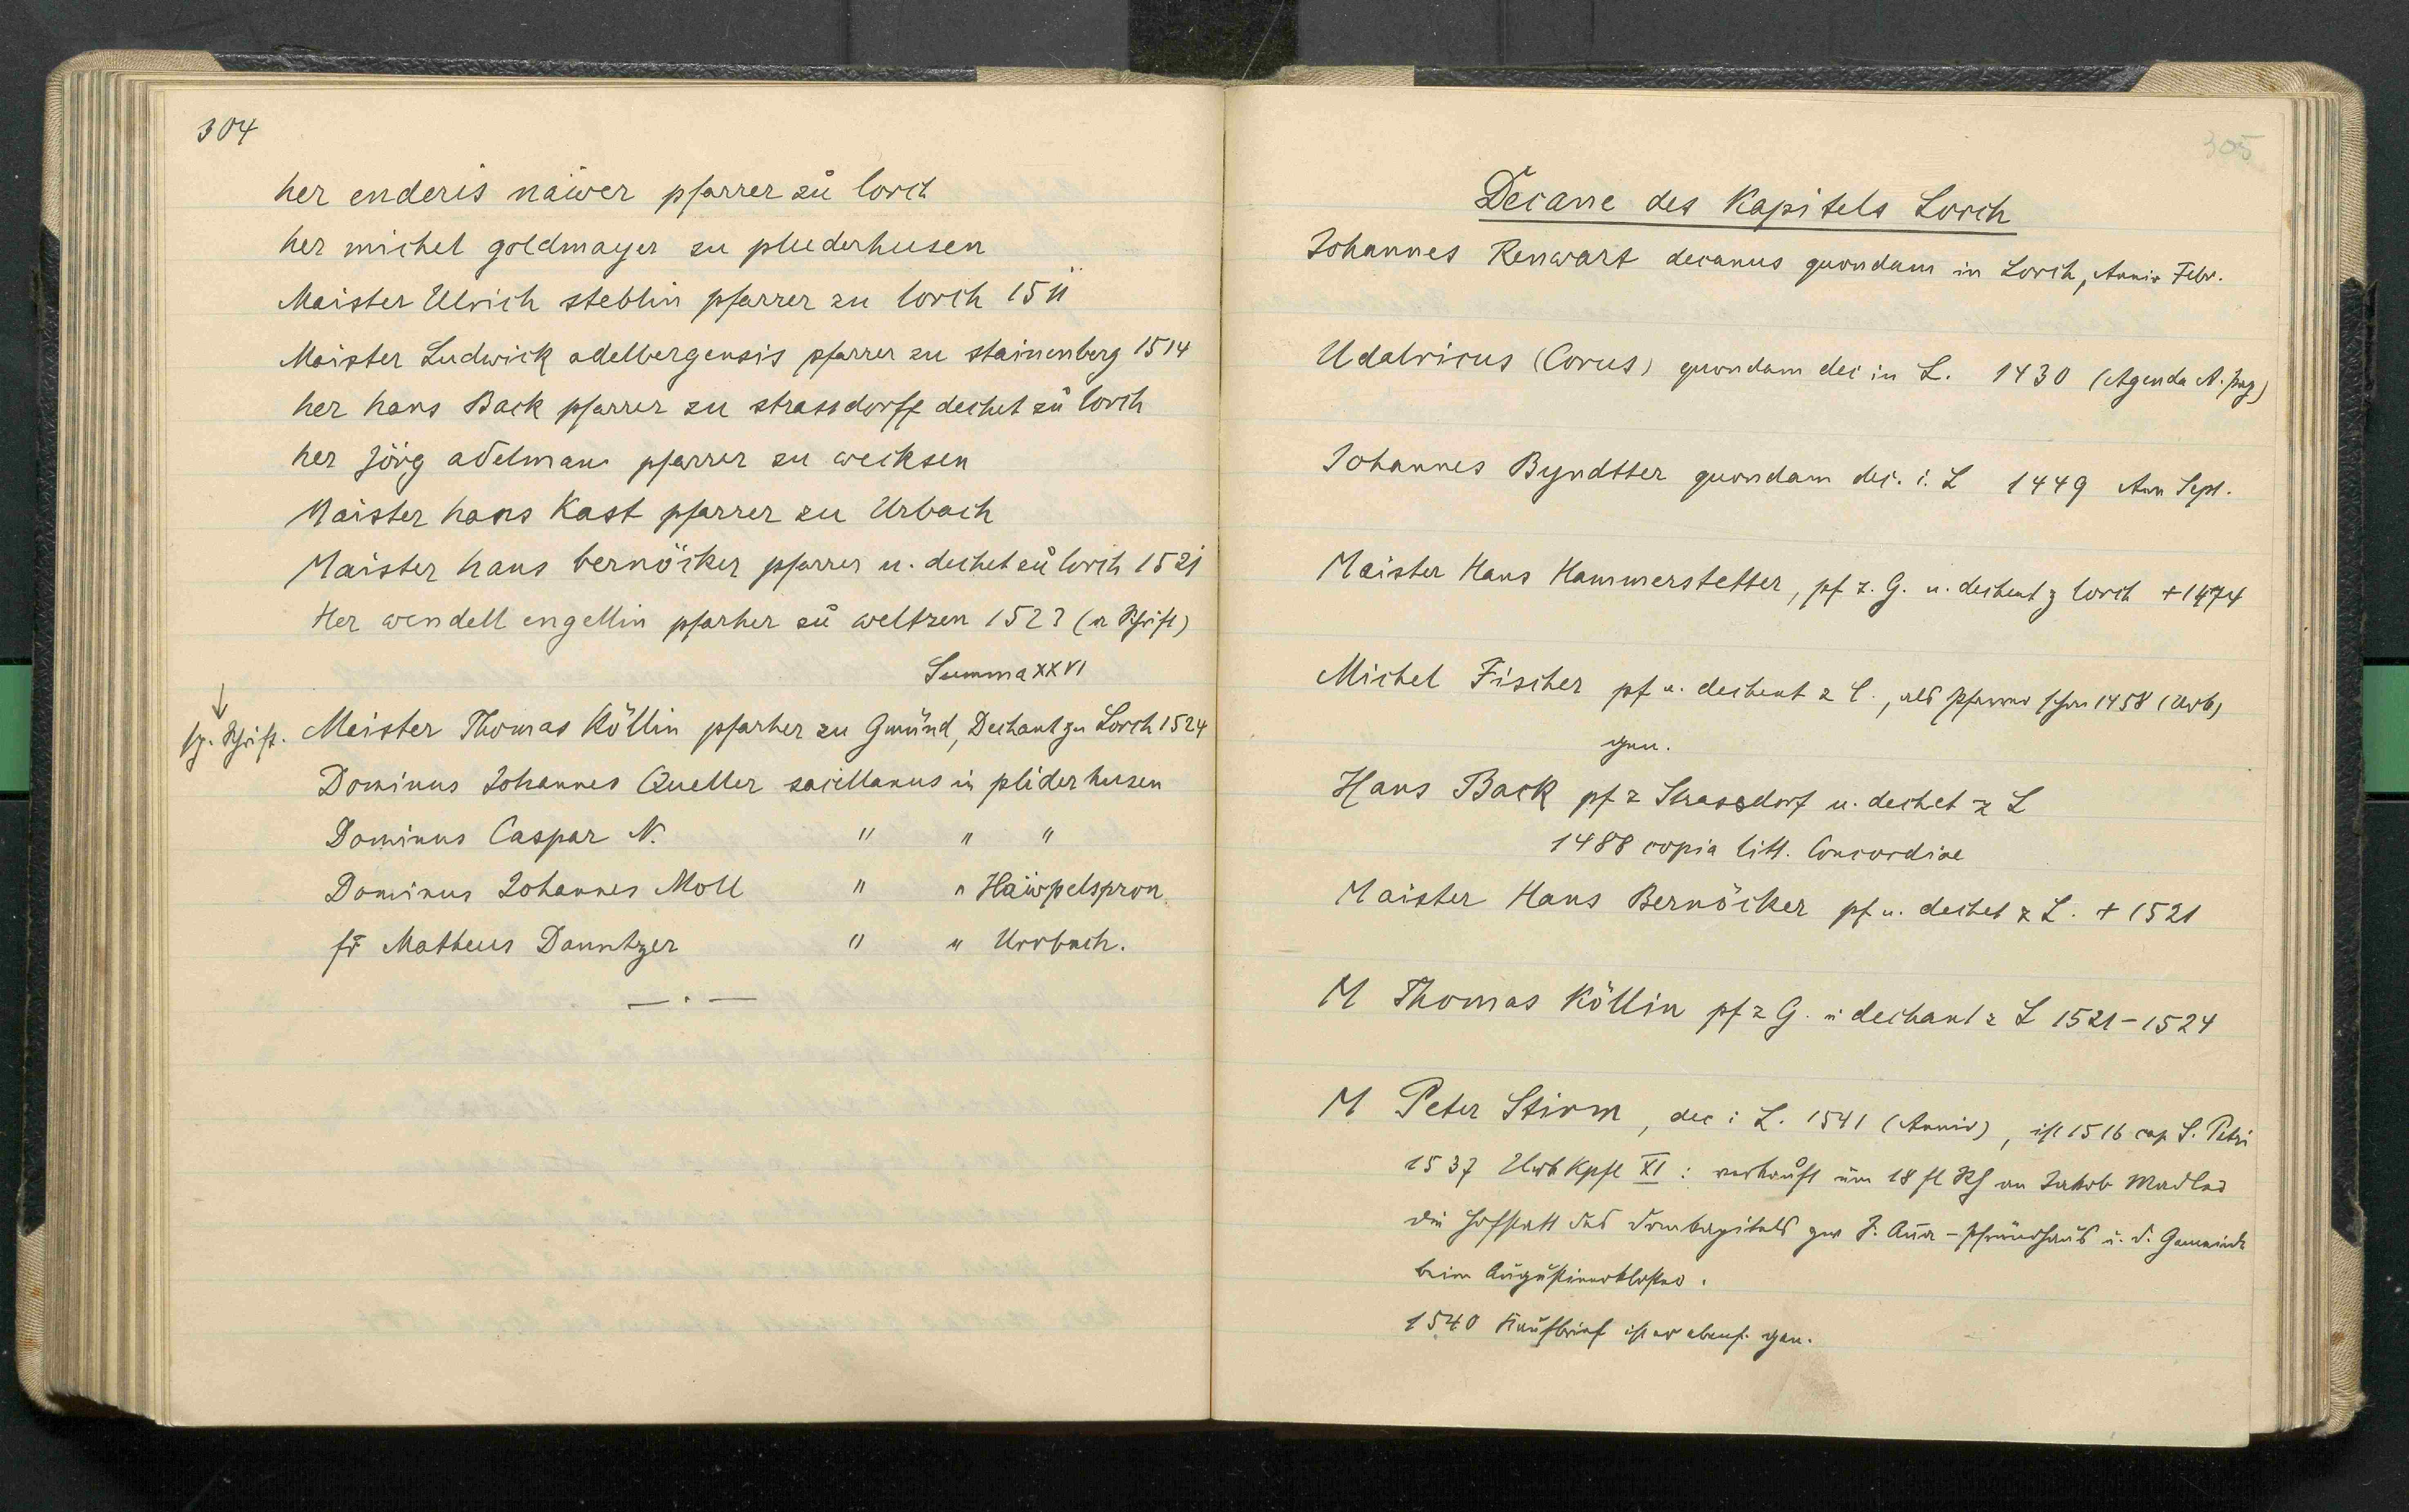 304
her enderis näwer pfarrer zů lorch
her michel goldmayer zu pluderhusen
Maister Ulrich steblin pfarrer zu lorch 1511
Maister Ludwick adelbergensis pfarrer zu stainenberg 1514
her hans Back pfarrer zu strassdorff dechet zů lorch
her Jörg adelman pfarrer zu wecksen
Maister hans Kast pfarrer zu Urbach
Maister hans bernöcker pfarrer u. dechet zů lorch 1521
Her wendell engellin pfarher zů weltzen 1523 (a Schrift)
Summa XXVI
↓
sp. Schrift. Meister Thomas Köllin pfarher zu Gmünd, Dechant zu Lorch 1524
Dominus Johannes Queller sacellanus in pliderhusen
Dominus Caspar N. " " "
Dominus Johannes Moll " " Häwpelspron
fr Matheus Danntzer " " Urrbach.
— . —
305
Decane des Kapitels Lorch
Johannes Renwart decanus quondam in Lorch, Anniv Febr.
Udalricus (Corus) quondam dec in L. 1430 (Agenda A. pag)
Johannes Byndtter quondam dec. i. L 1449 Ann Sept.
Maister Hans Hammerstetter, pf z. G. u. dechent z lorch + 1474
Michel Fischer pf u. dechent z L., als Pfarrer schon 1458 (Urb)
gen.
Hans Back pf z Strassdorf u. dechet z L
1488 copia litt. Concordiae
Maister Hans Bernöcker pf u. dechet z L. + 1521
M Thomas Köllin pf z G. u dechant z L 1521-1524
M Peter Stirm, dec i L. 1541 (Anniv), ist 1516 cap S. Petri
1537 Urb Kpfl XI: verkauft um 18 fl Rh an Jakob Madler
die Hofstatt des Domkapitels zw S. Anna-Pfründhaus u. d. Gemeinde
beim Augustinerkloster.
1540 Kaufbrief ist er ebenf. gen.